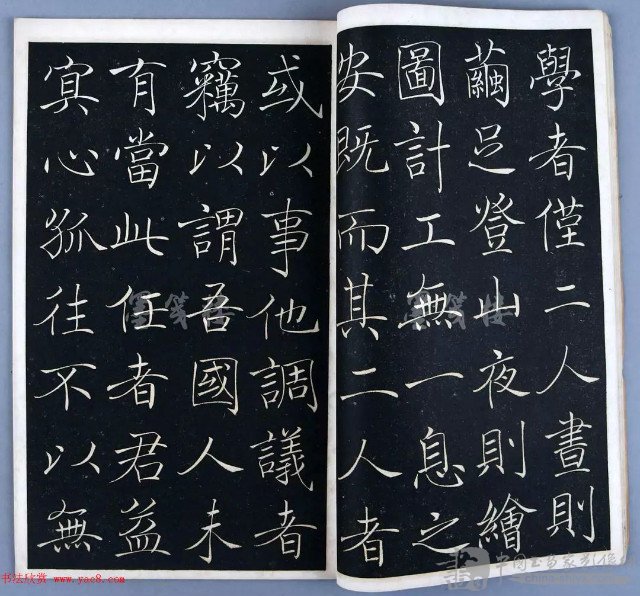 學者僅二人晝則
繭足登山夜則繪
圖計工無一息之
安既而其二人者
或以事他調議者
竊以謂吾國人未
有當此任者君益
寘心孤往不以無
墨笺楼
墨笺楼
书法欣赏 www.yac8.com